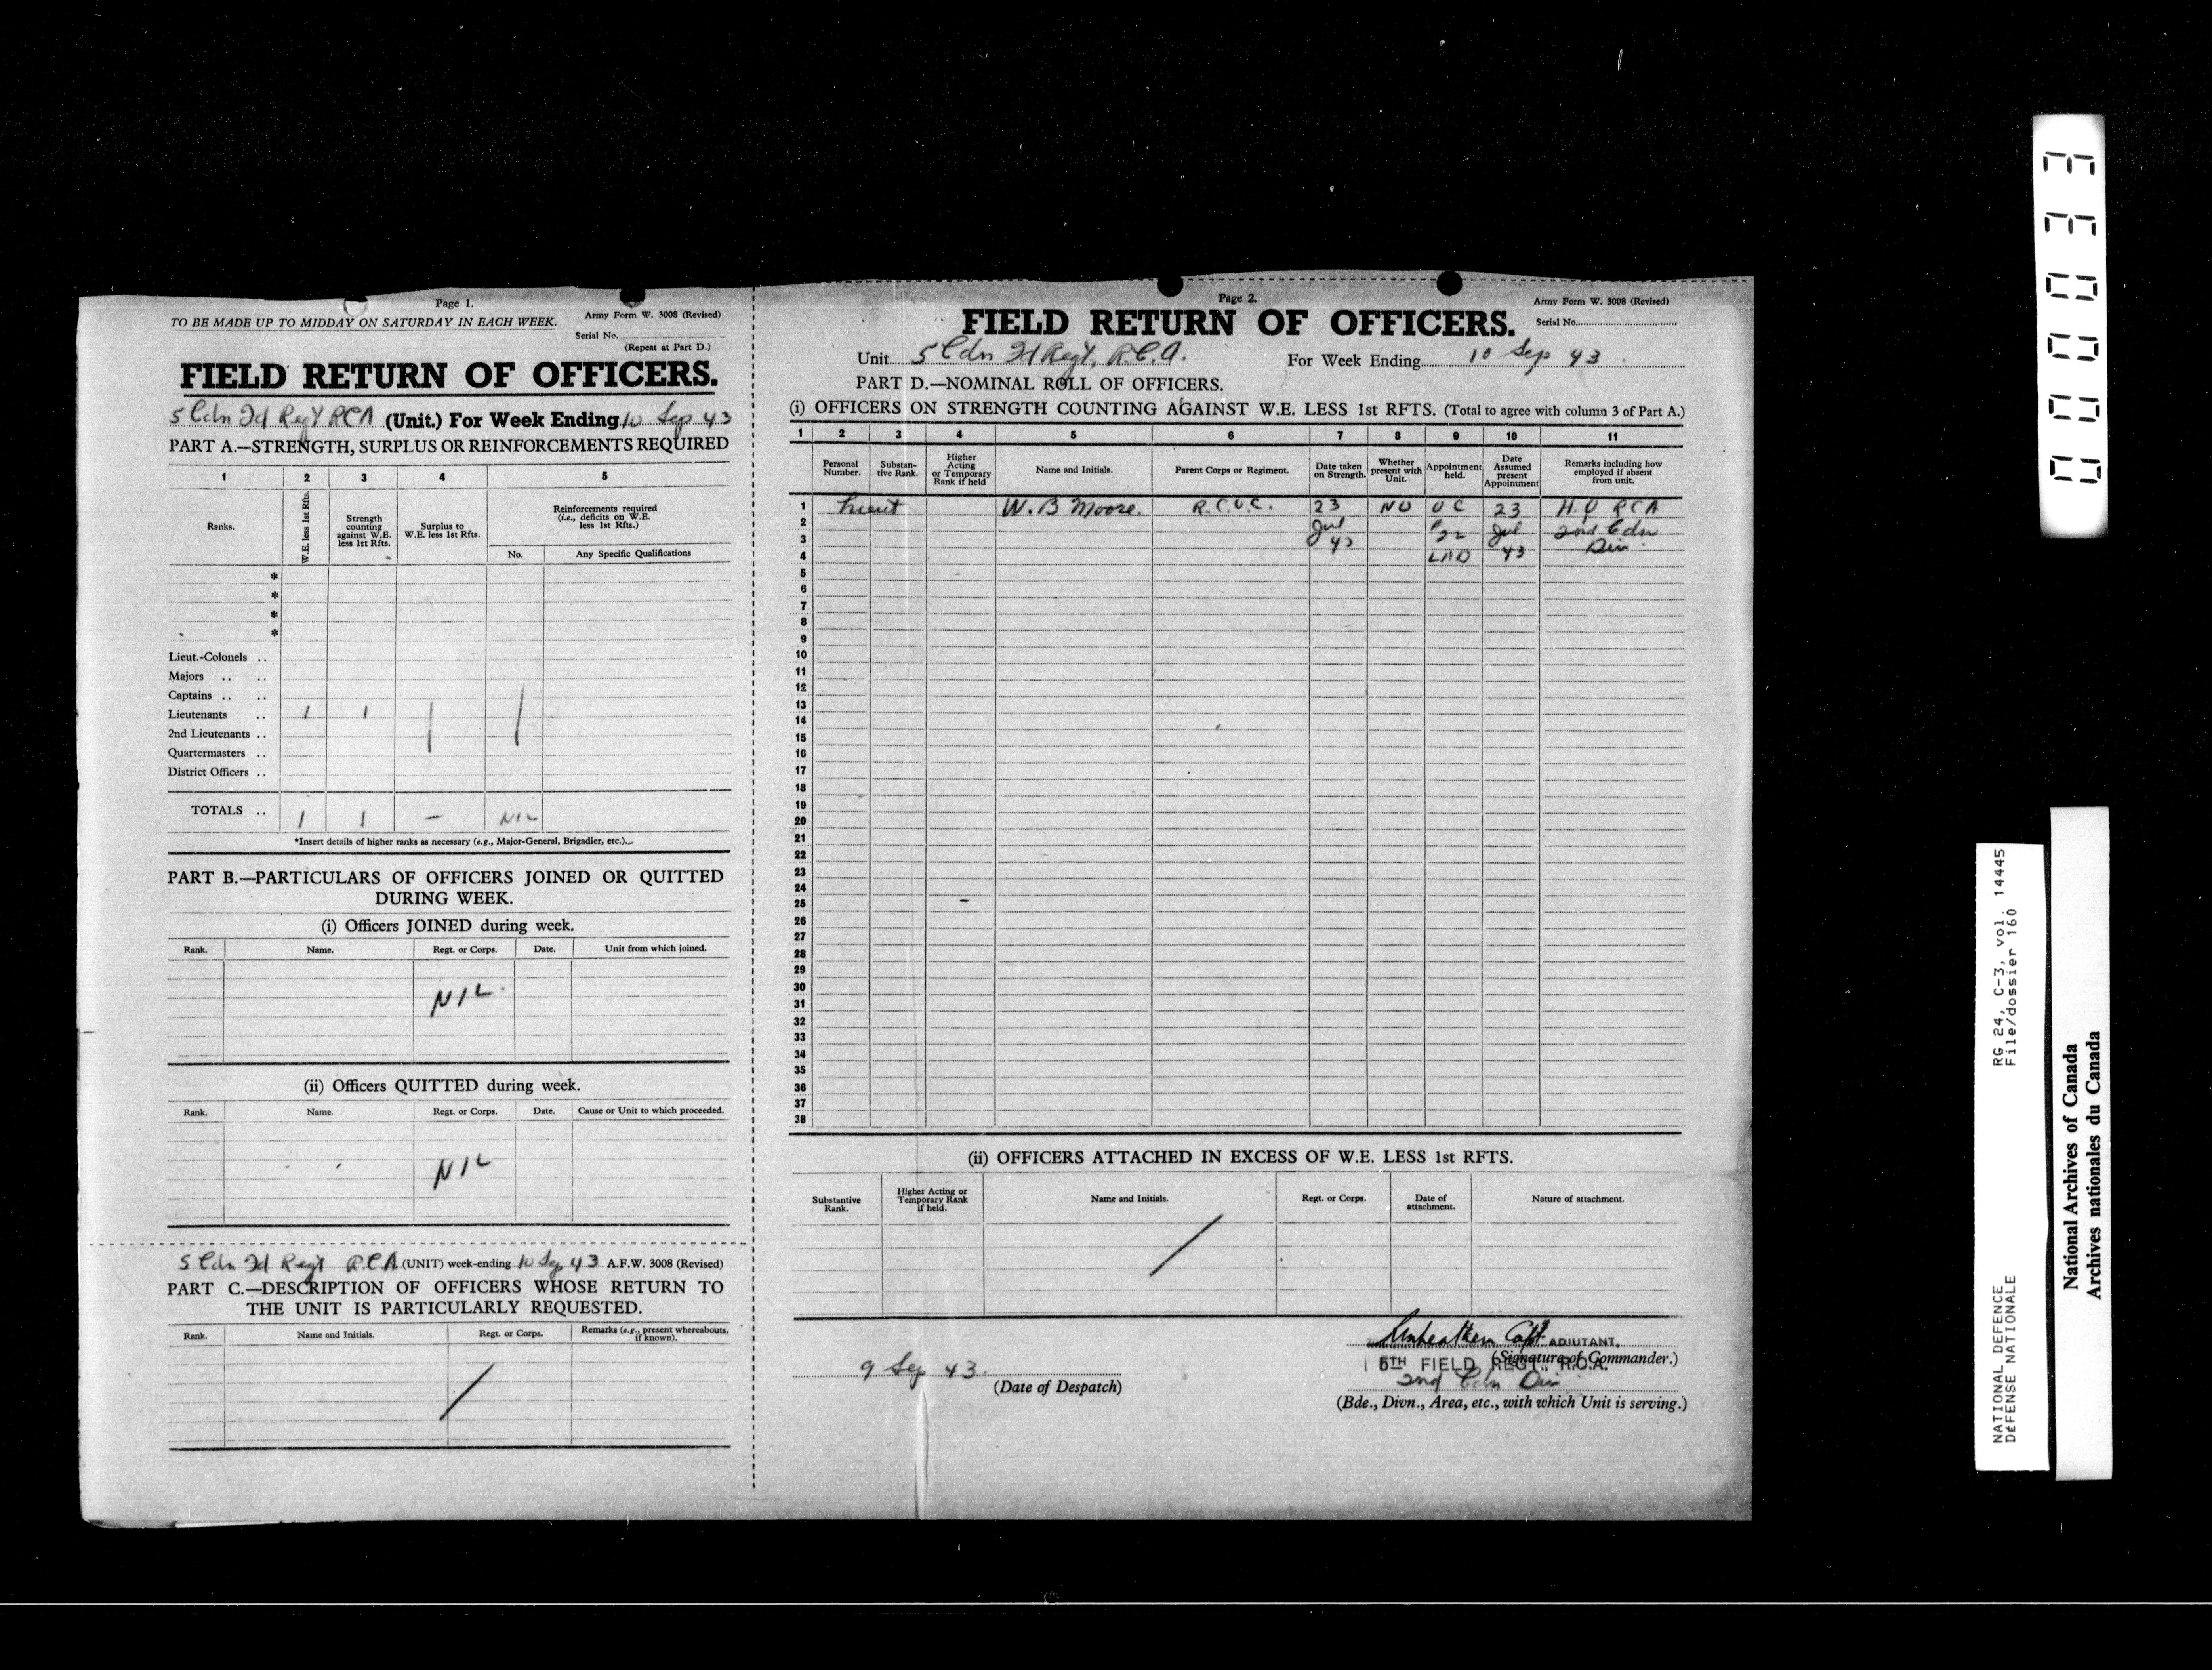 Page 1.
TO BE MADE UP TO MIDDAY ON SATURDAY IN EACH WEEK.
Army Form W. 3008 (Revised)
Serial No.
(Repeat at Part D.)
FIELD RETURN OF OFFICERS.
5 Cdn Fd Regt RCA (Unit.) For Week Ending 10 Sep 43
PART A.—STRENGTH, SURPLUS OR REINFORCEMENTS REQUIRED
1 2 3 4 5
Ranks. W.E. less 1st Rfts. Strength counting against W.E. less 1st Rfts. Surplus to W.E. less 1st Rfts. Reinforcements required (i.e., deficits on W.E. less 1st Rfts.)
No. Any Specific Qualifications
*
*
*
*
Lieut.-Colonels ..
Majors .. ..
Captains .. ..
Lieutenants .. 1 1
2nd Lieutenants ..
Quartermasters ..
District Officers ..
TOTALS .. 1 1 — NIL
*Insert details of higher ranks as necessary (e.g., Major-General, Brigadier, etc.).
PART B.—PARTICULARS OF OFFICERS JOINED OR QUITTED
DURING WEEK.
(i) Officers JOINED during week.
Rank. Name. Regt. or Corps. Date. Unit from which joined.
NIL.
(ii) Officers QUITTED during week.
Rank. Name. Regt. or Corps. Date. Cause or Unit to which proceeded.
NIL
5 Cdn Fd Regt RCA (UNIT) week-ending 10 Sep 43 A.F.W. 3008 (Revised)
PART C.—DESCRIPTION OF OFFICERS WHOSE RETURN TO
THE UNIT IS PARTICULARLY REQUESTED.
Rank. Name and Initials. Regt. or Corps. Remarks (e.g., present whereabouts, if known).
Page 2.
Army Form W. 3008 (Revised)
FIELD RETURN OF OFFICERS.
Serial No.
Unit 5 Cdn Fd Regt, R.C.A. For Week Ending 10 Sep 43
PART D.—NOMINAL ROLL OF OFFICERS.
(i) OFFICERS ON STRENGTH COUNTING AGAINST W.E. LESS 1st RFTS. (Total to agree with column 3 of Part A.)
1 2 3 4 5 6 7 8 9 10 11
Personal Number. Substan-tive Rank. Higher Acting or Temporary Rank if held Name and Initials. Parent Corps or Regiment. Date taken on Strength. Whether present with Unit. Appointment held. Date Assumed present Appointment Remarks including how employed if absent from unit.
1 Lieut W. B Moore. R.C.O.C. 23 NO OC 23 H.Q RCA
2 Jul 22 Jul 2nd Cdn
3 43 Div
4 LAD 43
5
6
7
8
9
10
11
12
13
14
15
16
17
18
19
20
21
22
23
24
25
26
27
28
29
30
31
32
33
34
35
36
37
38
(ii) OFFICERS ATTACHED IN EXCESS OF W.E. LESS 1st RFTS.
Substantive Rank. Higher Acting or Temporary Rank if held. Name and Initials. Regt. or Corps. Date of attachment. Nature of attachment.
Capt. ADJUTANT.
(Signature of Commander.)
5TH FIELD REGT., R.C.A.
9 Sep 43.
(Date of Despatch)
2nd Cdn Div
(Bde., Divn., Area, etc., with which Unit is serving.)
00003
RG 24, C-3, vol. 14445
File/dossier 160
NATIONAL DEFENCE
DÉFENSE NATIONALE
National Archives of Canada
Archives nationales du Canada